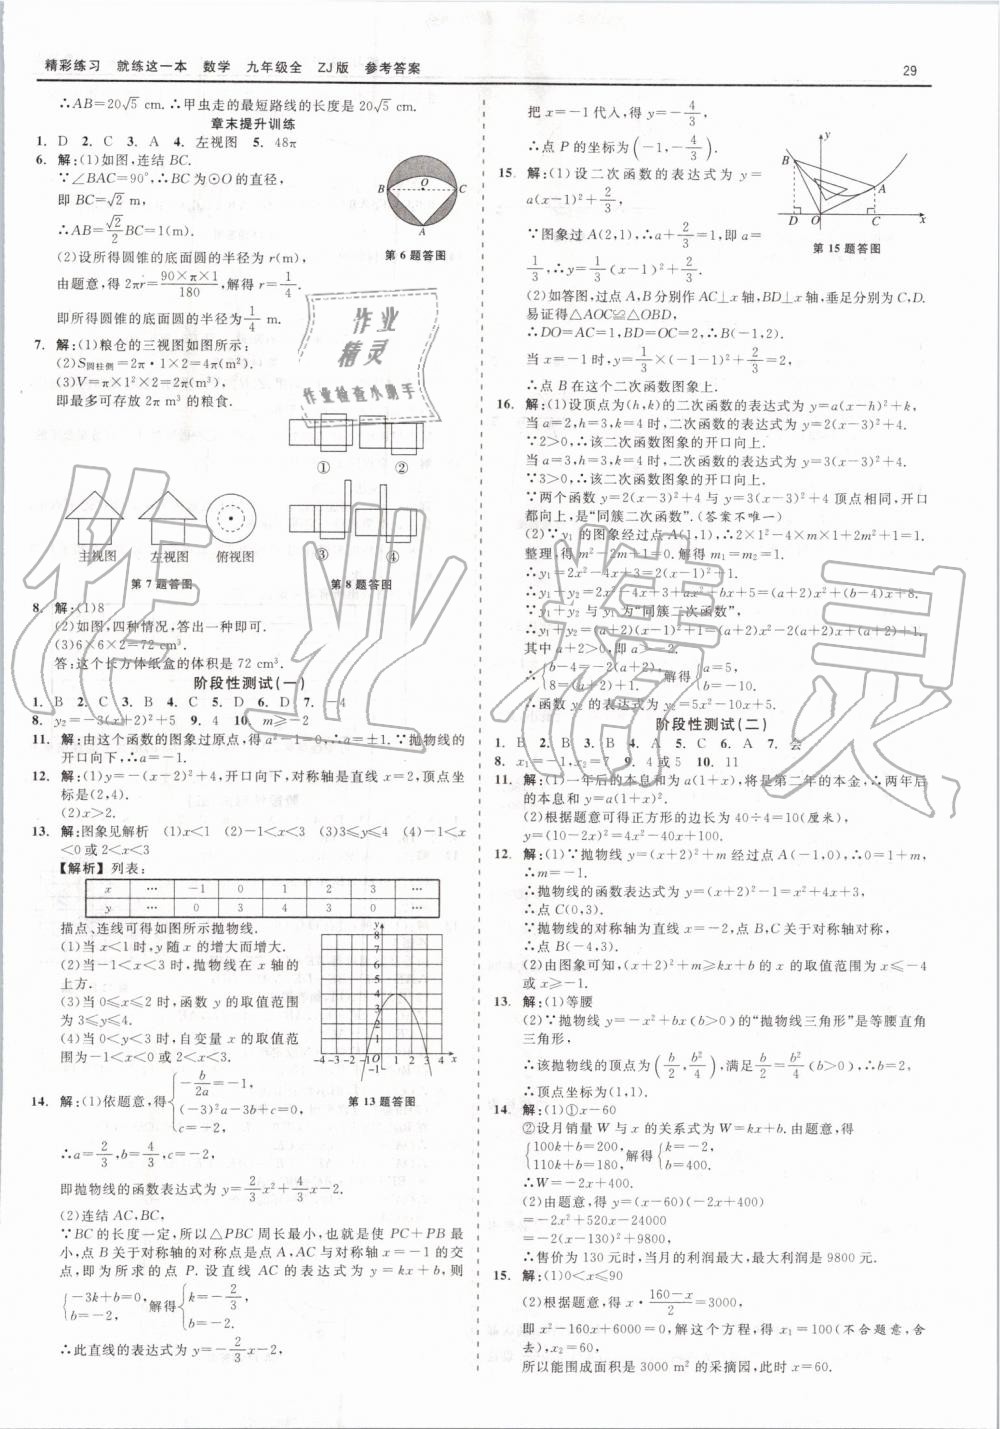 精彩练习 就练这一本 数学 九年级全 ZJ版 参考答案
29
∴AB=20√5 cm.∴甲虫走的最短路线的长度是20√5 cm.
章末提升训练
1. D 2. C 3. A 4. 左视图 5. 48π
6. 解:(1)如图,连结BC.
∵∠BAC=90°,∴BC为⊙O的直径,
即BC=√2 m,
∴AB=√2/2 BC=1(m).
(2)设所得圆锥的底面圆的半径为r(m),
由题意,得2πr=90×π×1/180,解得r=1/4.
即所得圆锥的底面圆的半径为1/4 m.
B O C A
第6题答图
7. 解:(1)粮仓的三视图如图所示:
(2)S圆柱侧=2π·1×2=4π(m²).
(3)V=π×1²×2=2π(m³),
即最多可存放2π m³的粮食.
作业
精灵
作业检查小助手
① ②
③ ④
主视图 左视图 俯视图
第7题答图 第8题答图
8. 解:(1)8
(2)如图,四种情况,答出一种即可.
(3)6×6×2=72 cm³.
答:这个长方体纸盒的体积是72 cm³.
阶段性测试(一)
1. B 2. C 3. B 4. C 5. D 6. D 7. -4
8. y₂=-3(x+2)²+5 9. 4 10. m≥-2
11. 解:由这个函数的图象过原点,得a²-1=0,∴a=±1.∵抛物线的
开口向下,∴a=-1.
12. 解:(1)y=-(x-2)²+4,开口向下,对称轴是直线x=2,顶点坐
标是(2,4).
(2)x>2.
13. 解:图象见解析 (1)x<1 (2)-1<x<3 (3)3≤y≤4 (4)-1<x
<0或2<x<3
【解析】列表:
x … -1 0 1 2 3 …
y … 0 3 4 3 0 …
描点、连线可得如图所示抛物线.
(1)当x<1时,y随x的增大而增大.
(2)当-1<x<3时,抛物线在x轴的
上方.
(3)当0≤x≤2时,函数y的取值范围
为3≤y≤4.
(4)当0<y<3时,自变量x的取值范
围为-1<x<0或2<x<3.
y 8 7 6 5 4 3 2 1
-4-3-2-1 O 1 2 3 4 x
-1
第13题答图
14. 解:(1)依题意,得{-b/2a=-1, (-3)²a-3b+c=0, c=-2,
∴a=2/3,b=4/3,c=-2,
即抛物线的函数表达式为y=2/3x²+4/3x-2.
(2)连结AC,BC,
∵BC的长度一定,所以△PBC周长最小,也就是使PC+PB最
小,点B关于对称轴的对称点是点A,AC与对称轴x=-1的交
点,即为所求的点P.设直线AC的表达式为y=kx+b,则
{-3k+b=0, b=-2, 解得{k=-2/3, b=-2.
∴此直线的表达式为y=-2/3x-2,
把x=-1代入,得y=-4/3,
∴点P的坐标为(-1,-4/3).
15. 解:(1)设二次函数的表达式为y=
a(x-1)²+2/3,
∵图象过A(2,1),∴a+2/3=1,即a=
1/3,∴y=1/3(x-1)²+2/3.
y B A D O C x
第15题答图
(2)如答图,过点A,B分别作AC⊥x轴,BD⊥x轴,垂足分别为C,D.
易证得△AOC≌△OBD,
∴DO=AC=1,BD=OC=2,∴B(-1,2).
当x=-1时,y=1/3×(-1-1)²+2/3=2,
∴点B在这个二次函数图象上.
16. 解:(1)设顶点为(h,k)的二次函数的表达式为y=a(x-h)²+k,
当a=2,h=3,k=4时,二次函数的表达式为y=2(x-3)²+4.
∵2>0,∴该二次函数图象的开口向上.
当a=3,h=3,k=4时,二次函数的表达式为y=3(x-3)²+4.
∵3>0,∴该二次函数图象的开口向上.
∵两个函数y=2(x-3)²+4与y=3(x-3)²+4顶点相同,开口
都向上,是“同簇二次函数”.(答案不唯一)
(2)∵y₁的图象经过点A(1,1),∴2×1²-4×m×1+2m²+1=1.
整理,得m²-2m+1=0.解得m₁=m₂=1.
∴y₁=2x²-4x+3=2(x-1)²+1,
∴y₁+y₂=2x²-4x+3+ax²+bx+5=(a+2)x²+(b-4)x+8.
∵y₁+y₂与y₁为“同簇二次函数”,
∴y₁+y₂=(a+2)(x-1)²+1=(a+2)x²-2(a+2)x+(a+2)+1.
其中a+2>0,即a>-2.
∴{b-4=-2(a+2), 8=(a+2)+1. 解得{a=5, b=-10.
∴函数y₂的表达式为y₂=5x²-10x+5.
阶段性测试(二)
1. B 2. B 3. B 4. A 5. C 6. A 7. 会
8. x₁=-1,x₂=7 9. 4或5 10. 11
11. 解:(1)一年后的本息和为a(1+x),将是第二年的本金,∴两年后
的本息和y=a(1+x)².
(2)根据题意可得正方形的边长为40÷4=10(厘米),
y=(10-2x)²=4x²-40x+100.
12. 解:(1)∵抛物线y=(x+2)²+m经过点A(-1,0),∴0=1+m,
∴m=-1.
∴抛物线的函数表达式为y=(x+2)²-1=x²+4x+3,
∴点C(0,3).
∵抛物线的对称轴为直线x=-2,点B,C关于对称轴对称,
∴点B(-4,3).
(2)由图象可知,(x+2)²+m≥kx+b的x的取值范围为x≤-4
或x≥-1.
13. 解:(1)等腰
(2)∵抛物线y=-x²+bx(b>0)的“抛物线三角形”是等腰直角
三角形,
∴该抛物线的顶点为(b/2,b²/4),满足b/2=b²/4(b>0),∴b=2,
∴顶点坐标为(1,1).
14. 解:(1)①x-60
②设月销量W与x的关系式为W=kx+b.由题意,得
{100k+b=200, 110k+b=180, 解得{k=-2, b=400.
∴W=-2x+400.
(2)由题意,得y=(x-60)(-2x+400)
=-2x²+520x-24000
=-2(x-130)²+9800,
∴售价为130元时,当月的利润最大,最大利润是9800元.
15. 解:(1)0<x≤90
(2)根据题意,得x·160-x/2=3000,
即x²-160x+6000=0,解这个方程,得x₁=100(不合题意,舍
去),x₂=60.
所以能围成面积是3000 m²的采摘园,此时x=60.
作业精灵